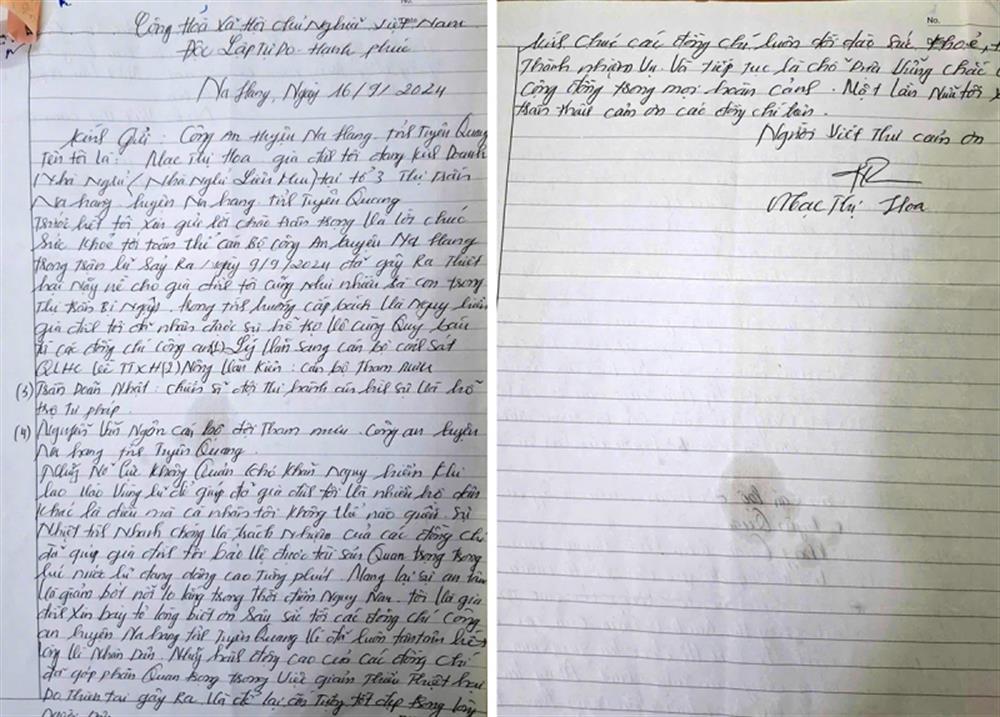 Cộng Hoà Xã Hội Chủ Nghĩa Việt Nam
Độc Lập Tự Do - Hạnh phúc
Na Hang, Ngày 16/9/2024
Kính Gửi: Công An Huyện Na Hang. tỉnh Tuyên Quang
Tên tôi là: Mạc Thị Hoa gia đình tôi đang kinh Doanh
Nhà Nghỉ (Nhà Nghỉ Liên Thu) tại tổ 3 Thị trấn
Na hang huyện Na hang tỉnh Tuyên Quang
Trước hết tôi xin gửi lời chào trân trọng Và lời chúc
Sức khoẻ tới toàn thể cán Bộ Công An huyện Na Hang
trong trận lũ Sảy Ra / ngày 9/9/2024 đã gây Ra Thiệt
hại Nặng nề cho gia đình tôi cũng như nhiều bà con trong
Thị trấn Bị Ngập. trong tình huống cấp bách Và Nguy hiểm
gia đình tôi đã nhận được sự hỗ trợ Vô cùng Quý báu
từ các đồng chí công an (1) Lý Văn Sang cán bộ cảnh sát
QLHC Về TTXH (2) Nông Văn Kiên: cán bộ Tham mưu
(3) Trần Doãn Nhật: chiến sĩ đội Thi hành án hình sự Và hỗ
trợ tư pháp
(4) Nguyễn Văn Ngôn cán bộ đội Tham mưu Công an huyện
Na hang tỉnh Tuyên Quang
Những Nỗ lực Không Quản khó khăn Nguy hiểm khi
lao Vào Vùng lũ để giúp đỡ gia đình tôi Và nhiều hộ dân
khác là điều mà cá nhân tôi không thể nào quên sự
Nhiệt tình Nhanh chóng Và trách Nhiệm của các đồng chí
đã giúp gia đình tôi bảo Vệ được tài sản Quan trọng trong
lúc nước lũ đang dâng cao từng phút. Mang lại sự an tâm
Và giảm bớt nỗi lo lắng trong Thời điểm Nguy Nan. tôi Và gia
đình Xin bày tỏ lòng biết ơn Sâu Sắc tới các đồng chí Công
an huyện Na hang tỉnh Tuyên Quang Vì đã luôn tận tâm hết
lòng Vì Nhân Dân. Những hành động cao cả của các đồng chí
đã góp phần Quan trọng trong Việc giảm Thiểu Thiệt hại
Do Thiên tai gây Ra Và để lại ấn Tượng tốt đẹp trong lòng
Người Dân
No.
Kính Chúc các đồng chí luôn dồi dào Sức khoẻ,
Thành nhiệm Vụ Và tiếp tục là chỗ Dựa Vững chắc
Cộng đồng trong mọi hoàn cảnh. Một lần Nữa tôi
trân thành cảm ơn các đồng chí
Người Viết Thư cảm ơn
Mạc Thị Hoa